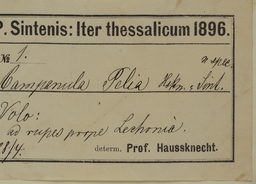 P. Sintenis: Iter thessalicum 1896.
№ 1.
Campanula Pelia Hskn. & Sint.
Volo:
ad rupes prope Lechonia.
18/4. determ. Prof. Haussknecht.